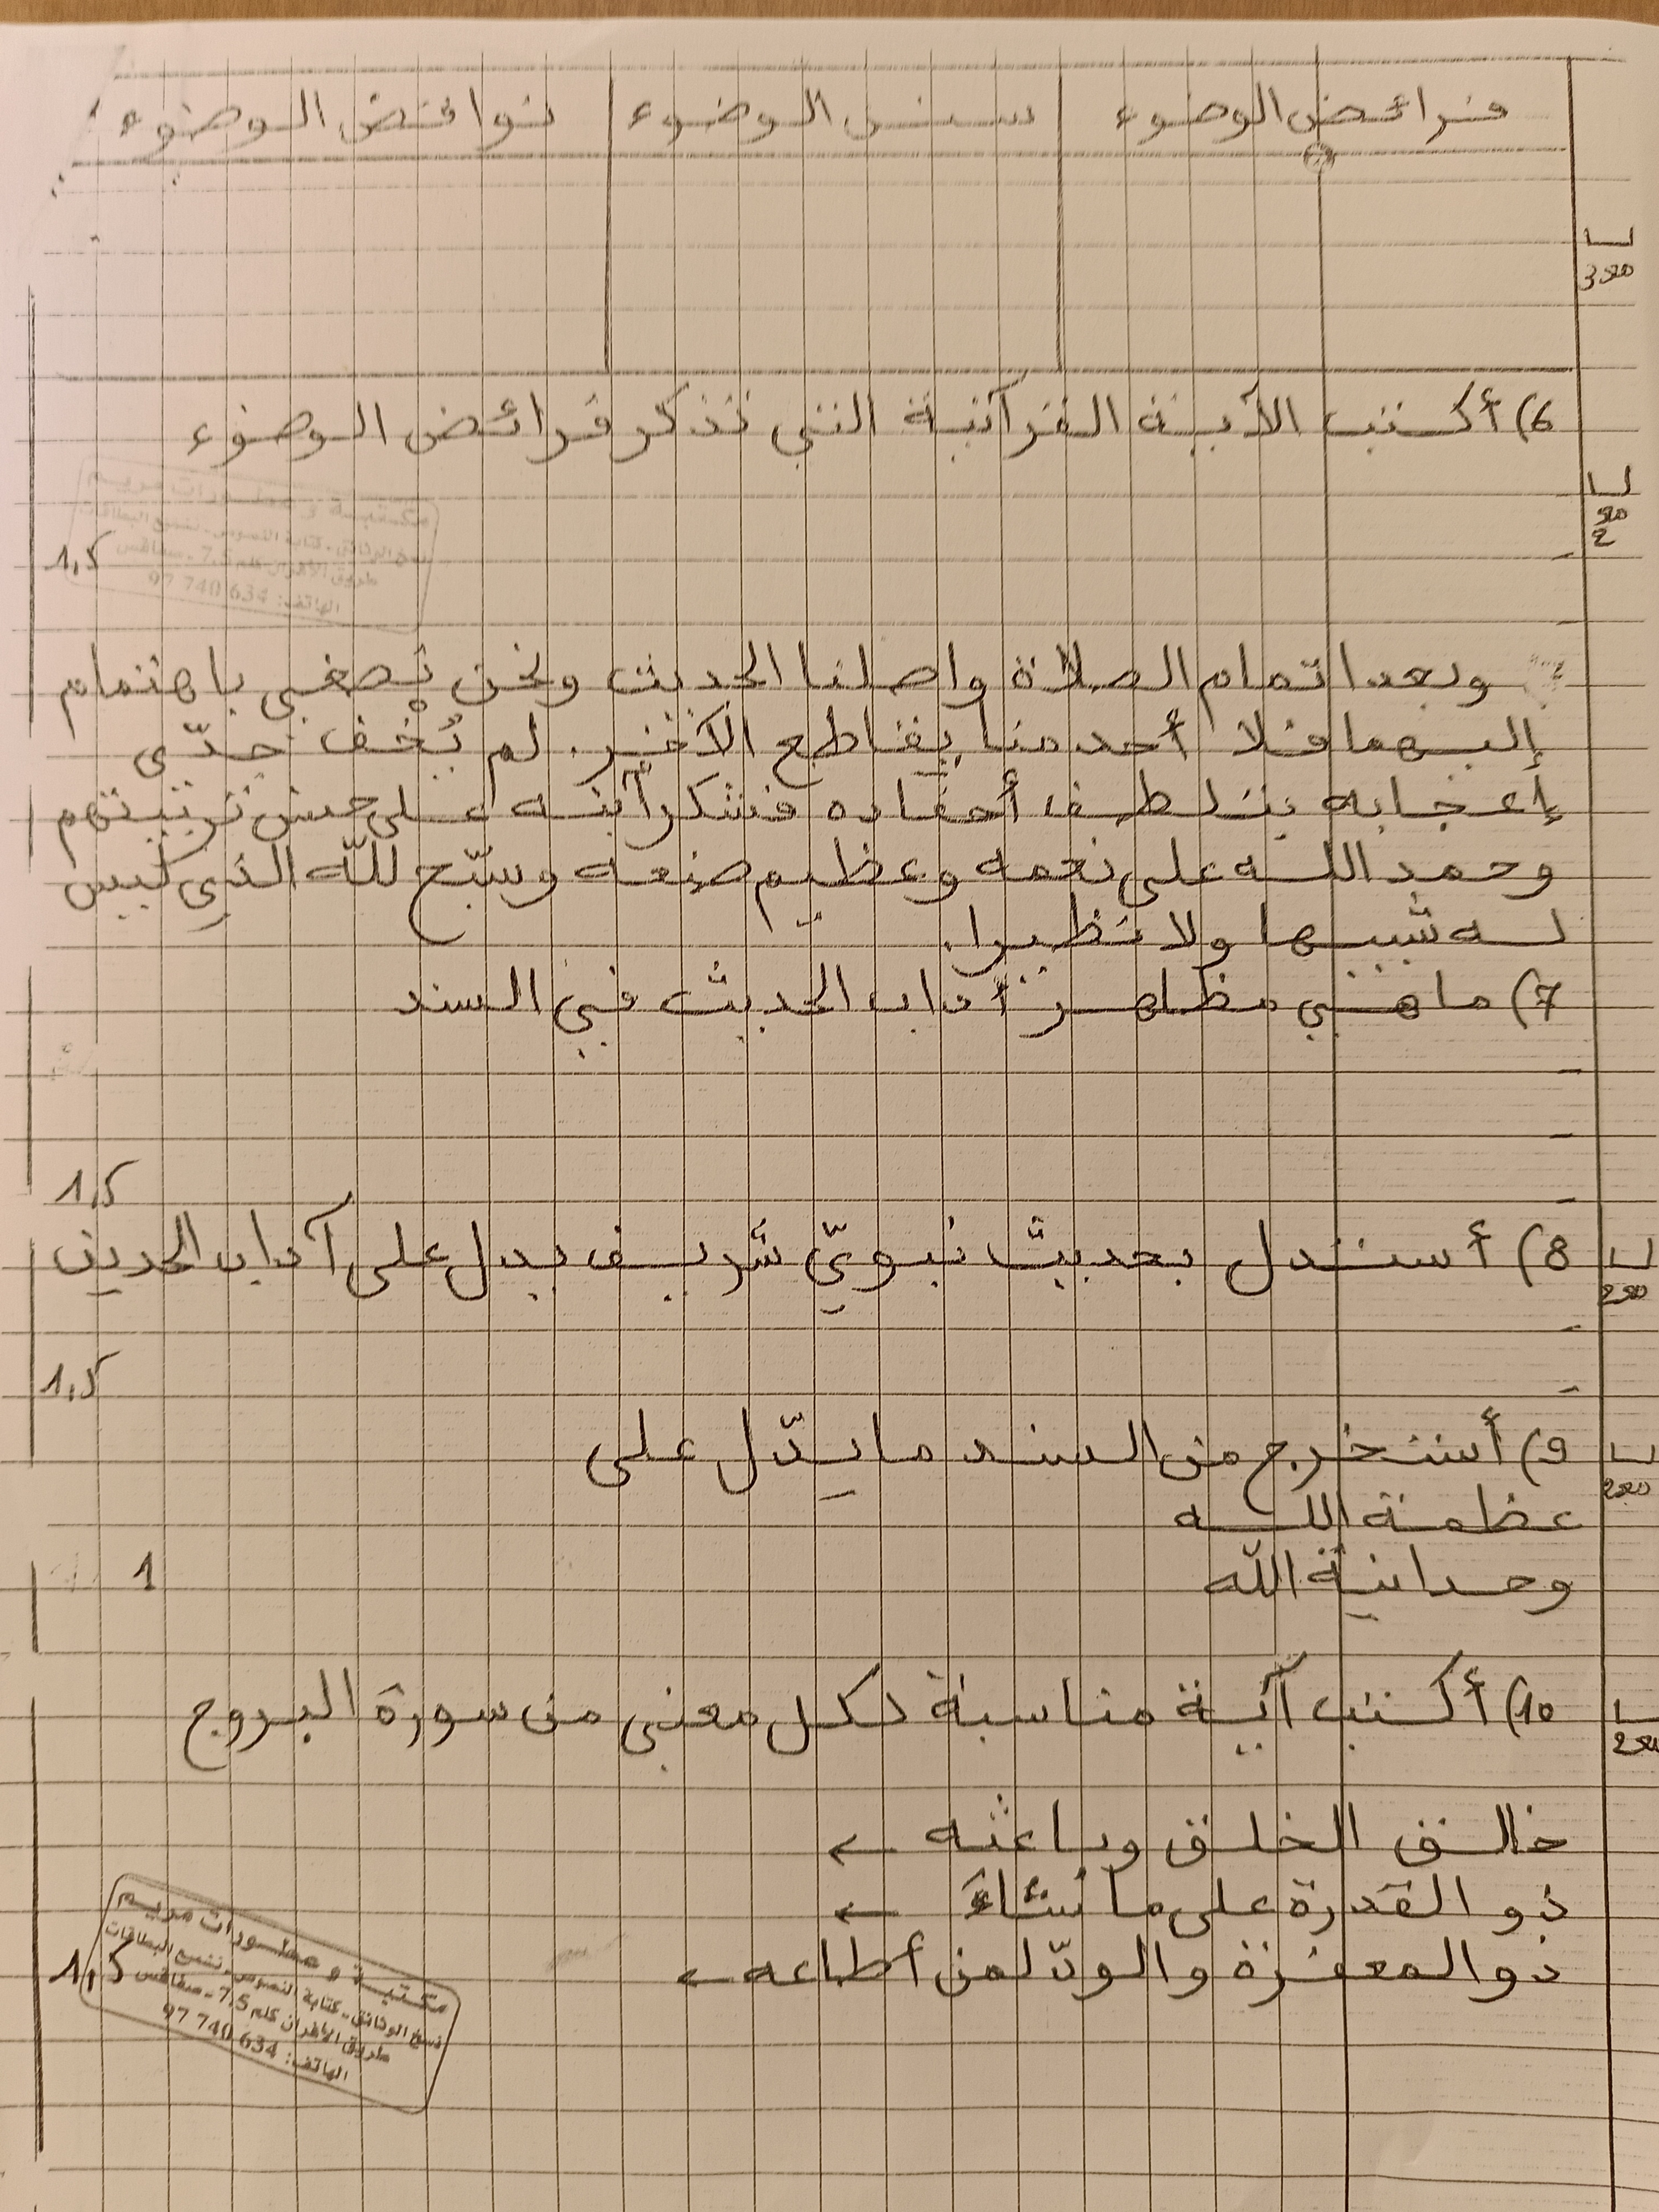 فرائض الوضوء سنن الوضوء نواقض الوضوء
6) أكتب الآية القرآنية التي تذكر فرائض الوضوء
مكتبة و مطبورات مريم
نسخ الوثائق - كتابة النصوص - تسريع البطاقات
طريق الأفران كلم 7,5 - صفاقس
الهاتف: 97 740 634
1,5
وبعد اتمام الصلاة واصلنا الحديث ونحن نصغي باهتمام
إليهما فلا أحد منا يقاطع الآخر. لم يُخف جدّي
إعجابه بتلطف أحفاده فشكر آبنه على حسن تربيتهم
وحمد الله على نعمه وعظيم صنعه وسبّح للّه الذي ليس
له شبيها ولا نظيرا.
7) ما هي مظاهر آداب الحديث في السند
1,5
8) أستدل بحديث نبويّ شريف يدل على آداب الحديث
1,5
9) أستخرج من السند ما يدّل على
عظمة الله
وحدانية الله
1
10) أكتب آية مناسبة لكل معنى من سورة البروج
خالق الخلق وباعثه ←
ذو القدرة على ما يشاء ←
ذو المغفرة والودّ لمن أطاعه ←
1,5
مكتبة و مطبورات مريم
نسخ الوثائق - كتابة النصوص - تسريع البطاقات
طريق الأفران كلم 7,5 - صفاقس
الهاتف: 97 740 634